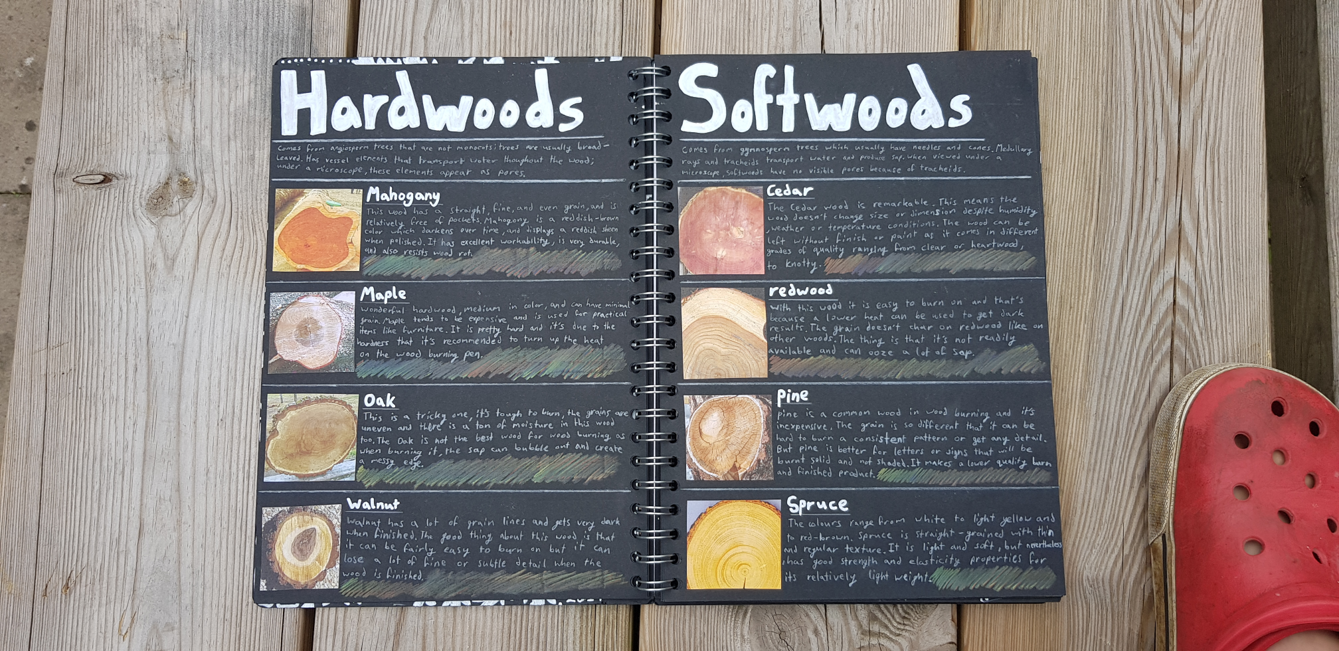 Hardwoods
Comes from angiosperm trees that are not monocots; trees are usually broad-
leaved. Has vessel elements that transport water thoughout the wood;
under a microscope, these elements appear as pores.
Mahogany
This wood has a straight, fine, and even grain, and is
relatively free of pockets. Mahogany is a reddish-brown
color which darkens over time, and displays a reddish sheen
when polished. It has excellent workability, is very durable,
and also resists wood rot.
Maple
Wonderful hardwood, medium in color, and can have minimal
grain. Maple tends to be expensive and is used for practical
items like furniture. It is pretty hard and it's due to the
hardness that it's recommended to turn up the heat
on the wood burning pen.
Oak
This is a tricky one, it's tough to burn, the grains are
uneven and there is a ton of moisture in this wood
too. The Oak is not the best wood for wood burning as
when burning it, the sap can bubble out and create
a messy edge.
Walnut
Walnut has a lot of grain lines and gets very dark
when finished. The good thing about this wood is that
it can be fairly easy to burn on but it can
lose a lot of fine or subtle detail when the
wood is finished.
Softwoods
Comes from gymnosperm trees which usually have needles and cones. Medullary
rays and tracheids transport water and produce sap. when viewed under a
microscope, softwoods have no visible pores because of tracheids.
Cedar
The Cedar wood is remarkable. This means the
wood doesn't change size or dimension despite humidity
, weather or temperature conditions. The wood can be
left without finish or paint as it comes in different
grades of quality ranging from clear or heartwood,
to knotty.
redwood
With this wood it is easy to burn on and that's
because a lower heat can be used to get dark
results. The grain doesn't char on redwood like on
other woods. The thing is that it's not readily
available and can ooze a lot of sap.
Pine
pine is a common wood in wood burning and it's
inexpensive. The grain is so different that it can be
hard to burn a consistent pattern or get any detail.
But pine is better for letters or signs that will be
burnt solid and not shaded. It makes a lower quality burn
and finished product.
Spruce
The colours range from white to light yellow and
to red-brown. Spruce is straight-grained with thin
and regular texture. It is light and soft, but nevertheless
has good strength and elasticity properties for
its relatively light weight.